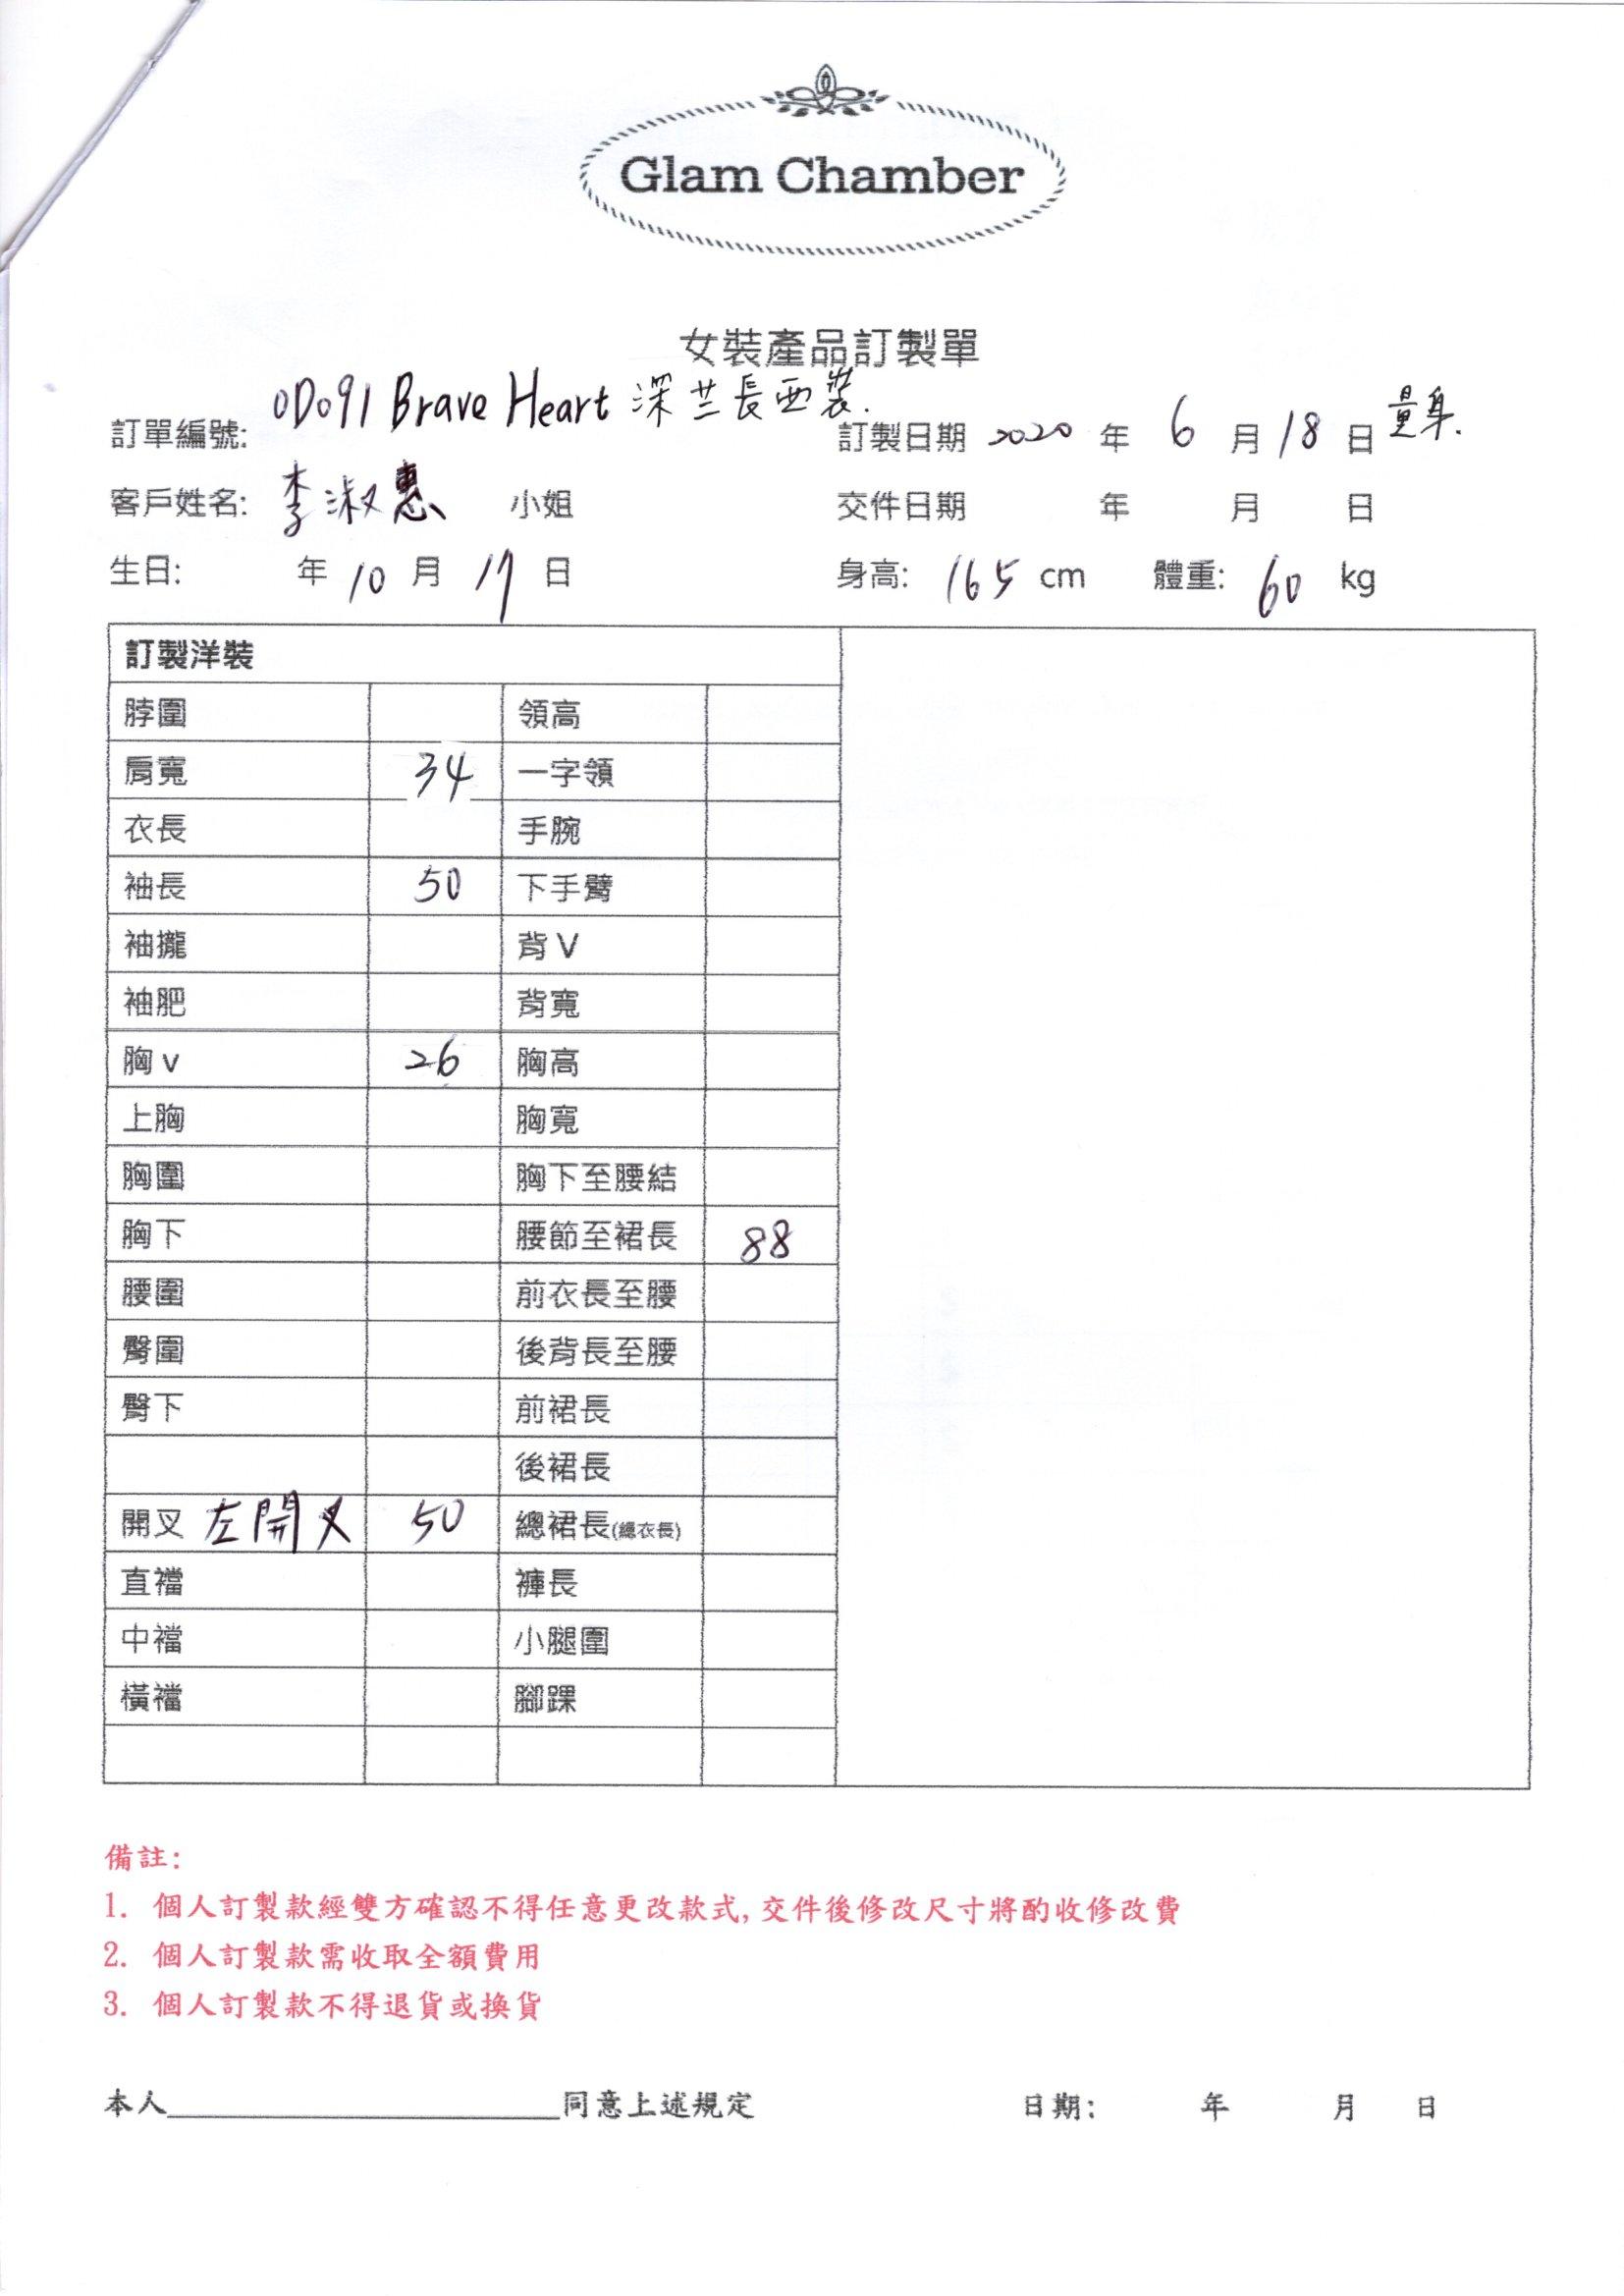 Glam Chamber
女裝產品訂製單
訂單編號: OD091 Brave Heart 深兰長西裝.
訂製日期 2020 年 6 月 18 日 量身.
客戶姓名: 李淑惠 小姐
交件日期 年 月 日
生日: 年 10 月 17 日
身高: 165 cm 體重: 60 kg
訂製洋裝
脖圍 領高
肩寬 34 一字領
衣長 手腕
袖長 50 下手臂
袖攏 背 V
袖肥 背寬
胸 v 26 胸高
上胸 胸寬
胸圍 胸下至腰結
胸下 腰節至裙長 88
腰圍 前衣長至腰
臀圍 後背長至腰
臀下 前裙長
後裙長
開叉 左開叉 50 總裙長(總衣長)
直襠 褲長
中襠 小腿圍
橫襠 腳踝
備註:
1. 個人訂製款經雙方確認不得任意更改款式,交件後修改尺寸將酌收修改費
2. 個人訂製款需收取全額費用
3. 個人訂製款不得退貨或換貨
本人____________________同意上述規定 日期: 年 月 日